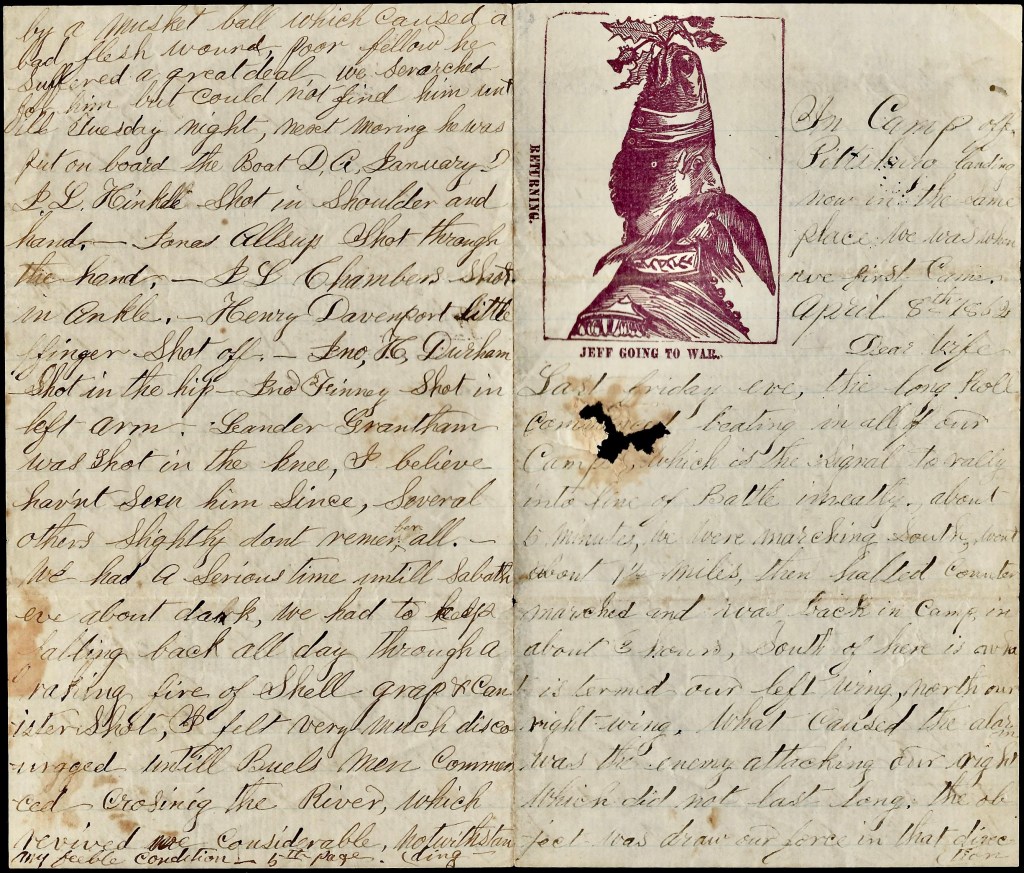 by a musket ball which caused a
bad flesh wound, poor fellow he
suffered a great deal, we serarched
for him but could not find him unt
ill Tuesday night, next moring he was
put on board the Boat D, A, January
J. L. Hinkle Shot in Shoulder and
hand, — Jonas Allsup Shot through
the hand, — J L Chambers Shot
in Ankle. — Henry Davenport little
ffinger Shot off. — Jno, H, Durham
Shot in the hip — Jno Finney Shot in
left arm. Leander Grantham
was Shot in the knee, I believe
hav'nt seen him Since, Several
others Slightly dont remember all. —
We had a Serious time untill Sabath
eve about dark, we had to keep
falling back all day through a
raking fire of Shell grap & Can
ister Shot, I felt very much disco
uraged untill Buels Men Commen
ced Crosineg the River, which
revived me Considerable, notwithstan
my feeble Condition — 5th page. (ding —
RETURNING.
JEFF GOING TO WAR.
In Camp at
Pittsburg landing
now in the same
place we was when
we first Came.
April 8th 1862
Dear Wife
Last friday eve, the long Roll
beating in all of our
Camps, which is the signal to rally
into line of Battle imeatly. about
5 minutes, we were marching South, went
about 1½ miles, then halted Counter
marched and was back in Camp, in
about 3 hours, South of here is
is termed our left wing, north our
right wing. What Caused the alarm
was the enemy attacking our right
Which did not last long, the ob
ject was draw our force in that direc
(tion